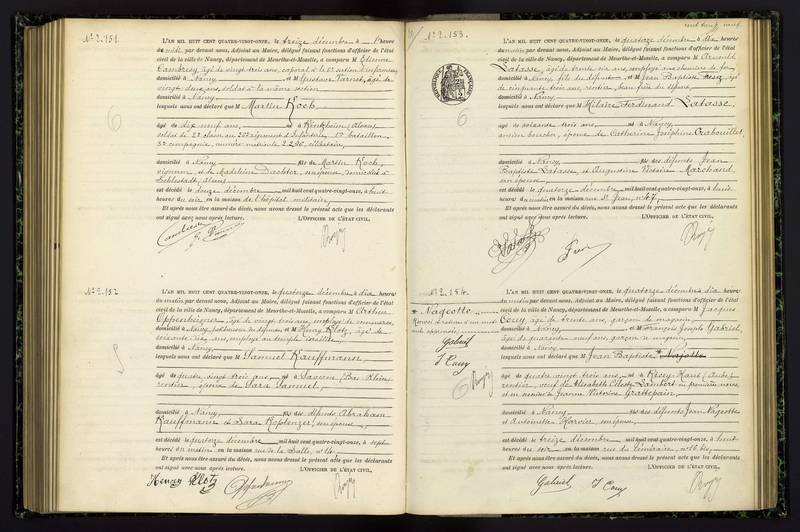 N° 2.151.
L'AN MIL HUIT CENT QUATRE-VINGT-ONZE, le treize décembre à heures
du midi, par devant nous, Adjoint au Maire, délégué faisant fonctions d'officier de l'état
civil de la ville de Nancy, département de Meurthe-et-Moselle, a comparu M Etienne
Cambresy, âgé de vingt-trois ans, caporal à la section d'infirmiers
domicilié à Nancy et M Gustave Varnet, âgé de
vingt deux ans, soldat à la même section
domicilié à Nancy
lesquels nous ont déclaré que M Martin Koch,
âgé de dix neuf ans, né à Kintzheim, Alsace,
soldat de 2e classe au régiment d'Infanterie, bataillon
3e compagnie, numéro matricule 2290, célibataire,
domicilié à Nancy fils de Martin Koch,
vigneron et de Madeleine Dachter, sa épouse, domiciliés à
Schlestadt, Alsace
est décédé le douze décembre mil huit cent quatre-vingt-onze, à huit
heures du soir en la maison de l'hôpital militaire
Et après nous être assuré du décès, nous avons dressé le présent acte que les déclarants
ont signé avec nous après lecture. L'OFFICIER DE L'ÉTAT CIVIL,
6
N° 2.152
L'AN MIL HUIT CENT QUATRE-VINGT-ONZE, le quatorze décembre à dix heures
du matin, par devant nous, Adjoint au Maire, délégué faisant fonctions d'officier de l'état
civil de la ville de Nancy, département de Meurthe-et-Moselle, a comparu M Arthur
Oppenheimer, âgé de vingt trois ans, employé de commerce
domicilié à Nancy, du défunt et M Henry Klotz, âgé de
soixante cinq ans, employé au temple israélite
domicilié à Nancy
lesquels nous ont déclaré que M Samuel Kauffmann,
âgé de quatre vingt trois ans né à Saverne, Bas Rhin,
rentier, époux de Sara Samuel,
domicilié à Nancy, fils des défunts Abraham
Kauffmann et Sara son épouse
est décédé le quatorze décembre mil huit cent quatre-vingt-onze, à sept
heures du matin en la maison rue de la Salle, n° 14
Et après nous être assuré du décès, nous avons dressé le présent acte que les déclarants
ont signé avec nous après lecture. L'OFFICIER DE L'ÉTAT CIVIL,
Henry Klotz
N° 2.153.
L'AN MIL HUIT CENT QUATRE-VINGT-ONZE, le quatorze décembre à dix heures
du matin par devant nous, Adjoint au Maire, délégué faisant fonctions d'officier de l'état
civil de la ville de Nancy, département de Meurthe-et-Moselle, a comparu M Arnould
Latasse, âgé de trente six ans, employé aux chemins de fer
domicilié à Nancy, fils du défunt et M Jean Baptiste âgé
de cinquante trois ans, rentier, beau frère du défunt,
domicilié à Nancy
lesquels nous ont déclaré que M Hilaire Ferdinand Latasse,
âgé de soixante trois ans, né à Nancy,
ancien boucher, époux de Catherine Joséphine Crabouillet,
domicilié à Nancy, fils des défunts Jean
Baptiste Latasse et Augustine Victoire Marchand,
son épouse
est décédé le quatorze décembre mil huit cent quatre-vingt-onze, à huit
heures du matin, en la maison rue St Jean, n° 47.
Et après nous être assuré du décès, nous avons dressé le présent acte que les déclarants
ont signé avec nous après lecture. L'OFFICIER DE L'ÉTAT CIVIL,
6
N° 2.154.
* Nageotte
Gabriel
L'AN MIL HUIT CENT QUATRE-VINGT-ONZE, le quatorze décembre à dix heures
du matin par devant nous, Adjoint au Maire, délégué faisant fonctions d'officier de l'état
civil de la ville de Nancy, département de Meurthe-et-Moselle, a comparu M Jacques
âgé de trente ans, garçon de magasin
domicilié à Nancy et M François Joseph Gabriel,
âgé de quarante neuf ans, garçon de magasin
domicilié à Nancy
lesquels nous ont déclaré que M Jean Baptiste * Najotte
âgé de quatre vingt trois ans, né à Haut, Aube,
rentier, veuf de Elisabeth Céleste Lambert en premières noces,
et en dernier de Jeanne Victoire Grattepain,
domicilié à Nancy fils des défunts Jean Nageotte
et Antoinette Horvier son épouse,
est décédé le treize décembre mil huit cent quatre-vingt-onze, à huit
heures du soir en la maison rue du Téméraire, n° 16 bis,
Et après nous être assuré du décès, nous avons dressé le présent acte que les déclarants
ont signé avec nous après lecture. L'OFFICIER DE L'ÉTAT CIVIL,
Gabriel